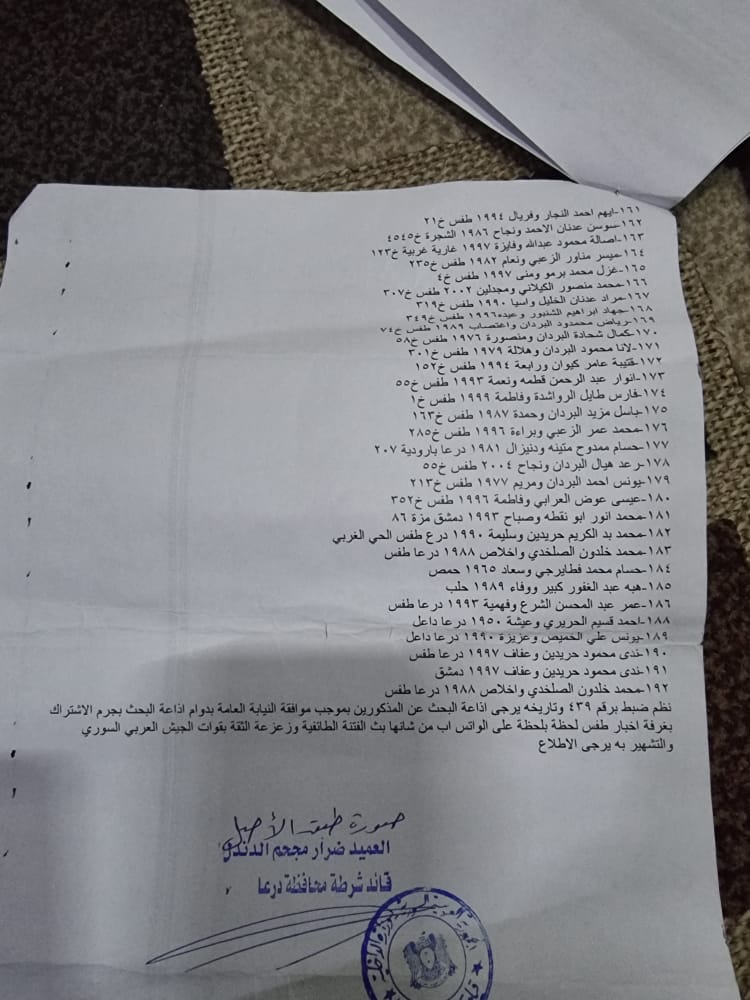 ١٦١-ايهم احمد النجار وفريال ١٩٩٤ طفس خ٢١
١٦٢-سوسن عدنان الاحمد ونجاح ١٩٨٦ الشجرة خ٤٥٤٥
١٦٣-اصالة محمود عبدالله وفايزة ١٩٩٧ غارية غربية خ١٢٣
١٦٤-ميسر مناور الزعبي ونعام ١٩٨٢ طفس خ٢٣٥
١٦٥-غزل محمد برمو ومنى ١٩٩٧ طفس خ٤
١٦٦-محمد منصور الكيلاني ومجدلين ٢٠٠٢ طفس خ٣٠٧
١٦٧-مراد عدنان الخليل واسيا ١٩٩٠ طفس خ٣١٩
١٦٨-جهاد ابراهيم الشنبور وعيده١٩٩٦ طفس خ٣٤٩
١٦٩-رياض محمدود البردان واعتصاب ١٩٨٩ طفس خ٧٤
١٧٠-كمال شحادة البردان ومنصورة ١٩٧٦ طفس خ٥٨
١٧١-لانا محمود البردان وهلالة ١٩٧٩ طفس خ٣٠١
١٧٢-قتيبة عامر كيوان ورابعة ١٩٩٤ طفس خ١٥٢
١٧٣-انوار عبد الرحمن قطمه ونعمة ١٩٩٣ طفس خ٥٥
١٧٤-فارس طايل الرواشدة وفاطمة ١٩٩٩ طفس خ١
١٧٥-باسل مزيد البردان وحمدة ١٩٨٧ طفس خ١٦٣
١٧٦-محمد عمر الزعبي وبراءة ١٩٩٦ طفس خ٢٨٥
١٧٧-حسام ممدوح متينه ودنيزال ١٩٨١ درعا بارودية ٢٠٧
١٧٨-رعد هيال البردان ونجاح ٢٠٠٤ طفس خ٥٥
١٧٩-يونس احمد البردان ومريم ١٩٧٧ طفس خ٢١٣
١٨٠-عيسى عوض العرابي وفاطمة ١٩٩٦ طفس خ٣٥٢
١٨١-محمد انور ابو نقطه وصباح ١٩٩٣ دمشق مزة ٨٦
١٨٢-محمد بد الكريم حريدين وسليمة ١٩٩٠ درع طفس الحي الغربي
١٨٣-محمد خلدون الصلخدي واخلاص ١٩٨٨ درعا طفس
١٨٤-حسام محمد فطايرجي وسعاد ١٩٦٥ حمص
١٨٥-هبه عبد الغفور كبير ووفاء ١٩٨٩ حلب
١٨٦-عمر عبد المحسن الشرع وفهمية ١٩٩٣ درعا طفس
١٨٨-احمد قسيم الحريري وعيشة ١٩٥٠ درعا داعل
١٨٩-يونس علي الخميص وعزيزة ١٩٩٠ درعا داعل
١٩٠-ندى محمود حريدين وعفاف ١٩٩٧ درعا طفس
١٩١-ندى محمود حريدين وعفاف ١٩٩٧ دمشق
١٩٢-محمد خلدون الصلخدي واخلاص ١٩٨٨ درعا طفس
نظم ضبط برقم ٤٣٩ وتاريخه يرجى اذاعة البحث عن المذكورين بموجب موافقة النيابة العامة بدوام اذاعة البحث بجرم الاشتراك
بغرفة اخبار طفس لحظة بلحظة على الواتس اب من شانها بث الفتنة الطائفية وزعزعة الثقة بقوات الجيش العربي السوري
والتشهير به يرجى الاطلاع
صورة طبق الأصل
العميد ضرار مجحم الدندل
قائد شرطة محافظة درعا